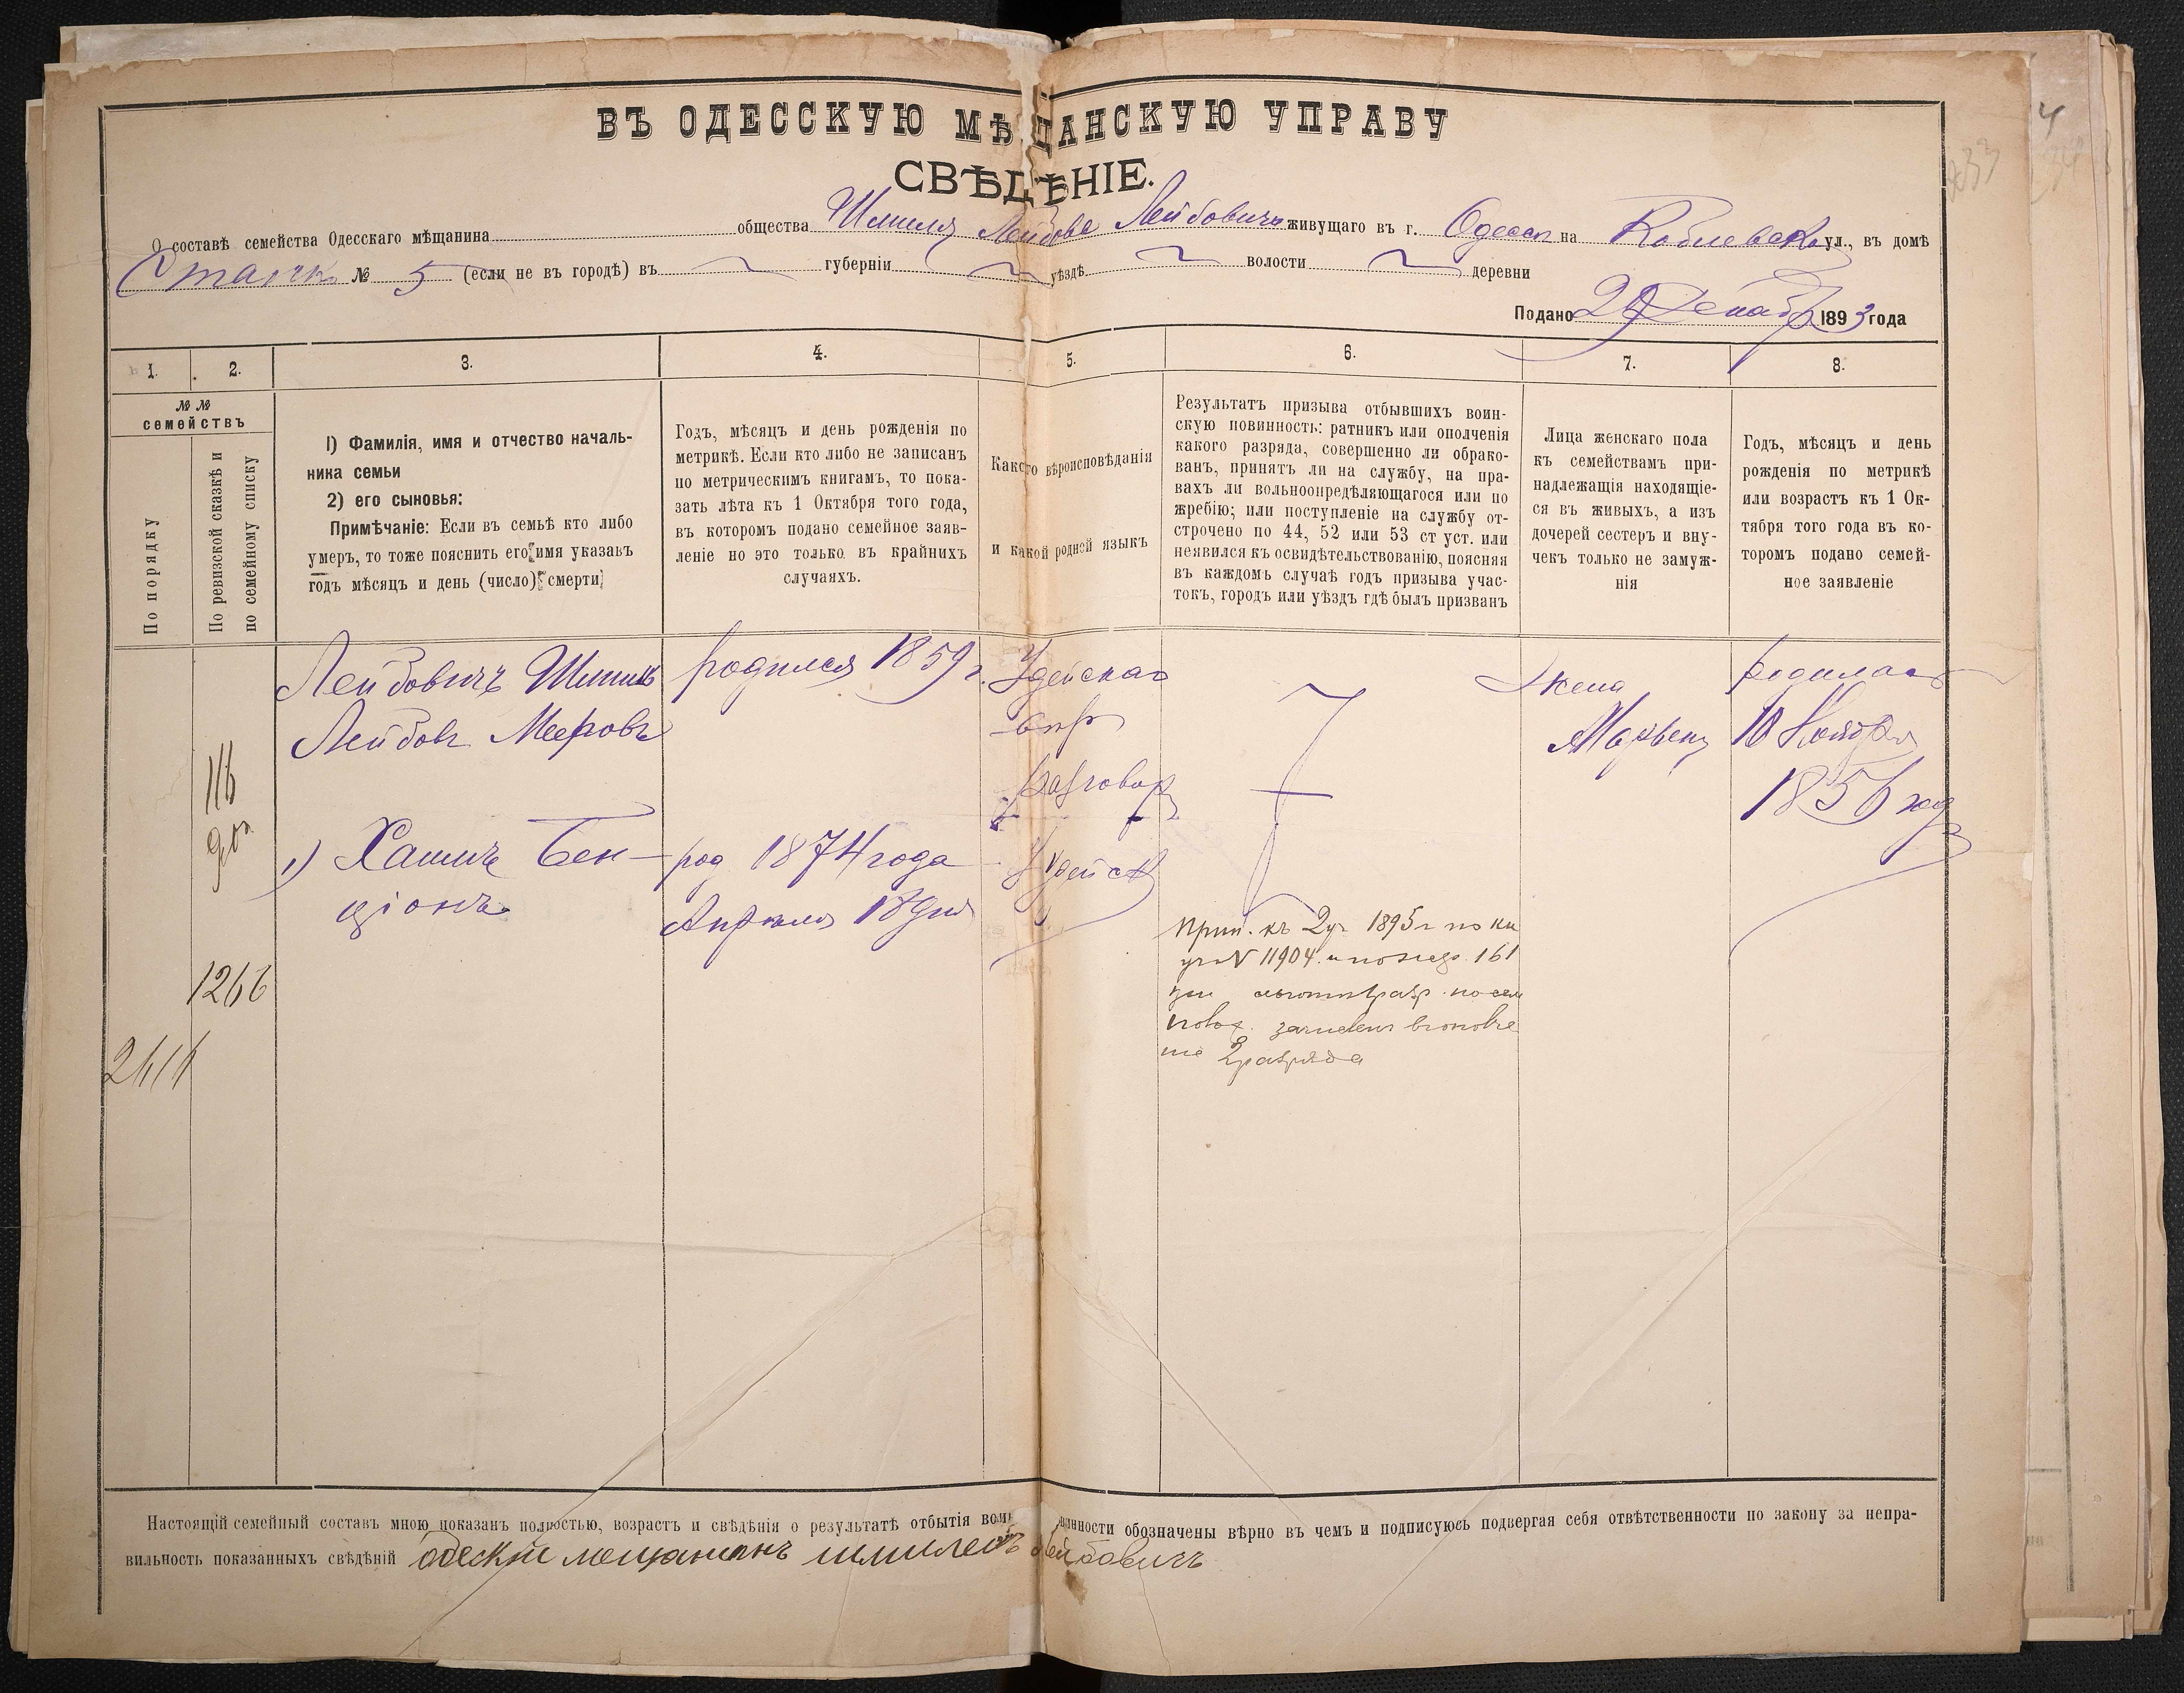 ВЪ ОДЕССКУЮ МѢЩАНСКУЮ УПРАВУ
СВѢДѢНІЕ.
О составѣ семейства Одесскаго мѣщанина общества Шмиля Лейбова Лейбовичъ живущаго въ г. Одессѣ на Коблевской ул., въ домѣ
№ 5 (если не въ городѣ) въ губерніи уѣздѣ волости деревни
Подано Декабр 1893 года
1.
2.
3.
4.
5.
6.
7.
8.
№ №
семействъ
По порядку
По ревизской сказкѣ и
по семейному списку
1) Фамилія, имя и отчество началь-
ника семьи
2) его сыновья:
Примѣчаніе: Если въ семьѣ кто либо
умеръ, то тоже пояснить его имя указавъ
годъ мѣсяцъ и день (число) смерти
Годъ, мѣсяцъ и день рожденія по
метрикѣ. Если кто либо не записанъ
по метрическимъ книгамъ, то пока-
зать лѣта къ 1 Октября того года,
въ которомъ подано семейное заяв-
леніе но это только въ крайнихъ
случаяхъ.
Какого вѣроисповѣданія
и какой родной языкъ
Результатъ призыва отбывшихъ воин-
скую повинность: ратникъ или ополченія
какого разряда, совершенно ли обрако-
ванъ, принятъ ли на службу, на пра-
вахъ ли вольноопредѣляющагося или по
жребію; или поступленіе на службу от-
строчено по 44, 52 или 53 ст уст. или
неявился къ освидѣтельствованію, поясняя
въ каждомъ случаѣ годъ призыва учас-
токъ, городъ или уѣздъ гдѣ былъ призванъ
Лица женскаго пола
къ семействамъ при-
надлежащія находящіе-
ся въ живыхъ, а изъ
дочерей сестеръ и вну-
чекъ только не замуж-
нія
Годъ, мѣсяцъ и день
рожденія по метрикѣ
или возрастъ къ 1 Ок-
тября того года въ ко-
торомъ подано семей-
ное заявленіе
Лейбовичъ Шмиль
Лейбовъ Мееровъ
родился 1859 г.
Іудейская
вѣр
разговор
Іудейск
Жена
Марьем
родилась
10 Ноября
1856 год
116
доп.
1) Хаимъ Бен-
ціонъ
род 1874 года
Апрѣля 18 дня
1266
Приз. къ 2 уч 1895 г по
№ 11904. 161
льготн разр. по сем
полож. зачисленъ в ополче
ніе 2 разряда
Настоящій семейный составъ мною показанъ полностью, возрастъ и свѣдѣнія о результатѣ отбытія воинской повинности обозначены вѣрно въ чемъ и подписуюсь подвергая себя отвѣтственности по закону за непра-
вильность показанныхъ свѣдѣній одескій мещанинъ Лейбовичъ